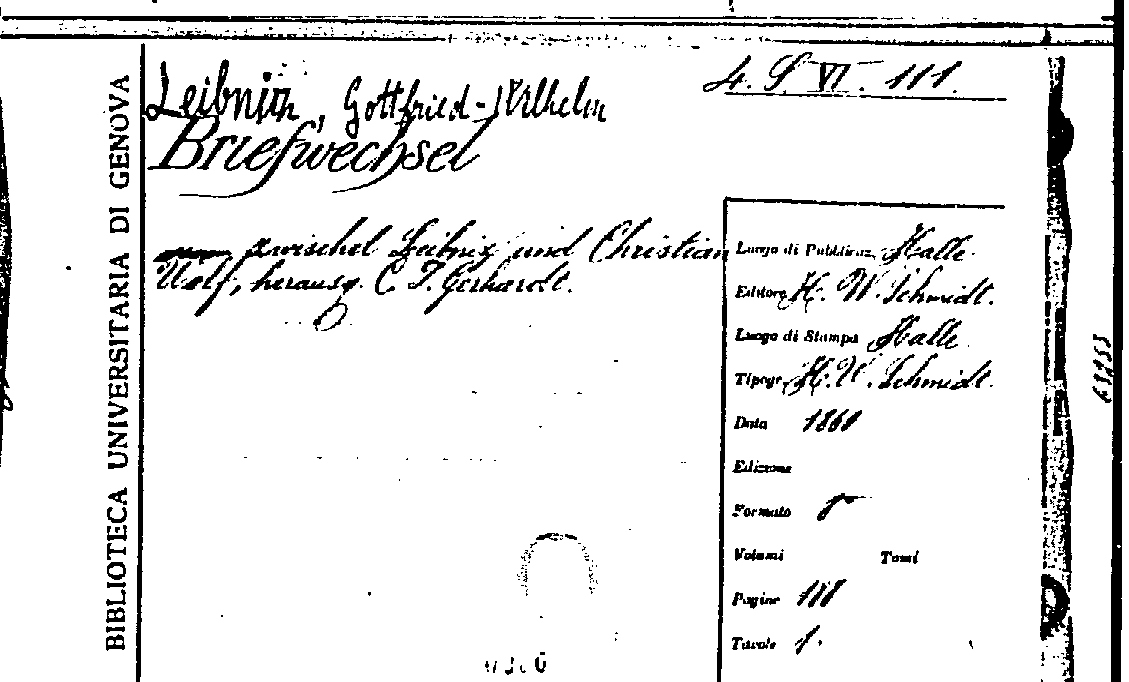 BIBLIOTECA UNIVERSITARIA DI GENOVA
Leibniz, Gottfried-Wilhelm
4. S. VI. 111.
Briefwechsel
zwischel Leibniz und Christian
Wolf, herausg. C. I. Gerhardt.
Luogo di Pubblicaz. Halle
Editore H. W. Schmidt.
Luogo di Stampa Halle
Tipogr. H. W. Schmidt.
Data 1860
Edizione
Formato 8°
Volumi Tomi
Pagine 188
Tavole 1.